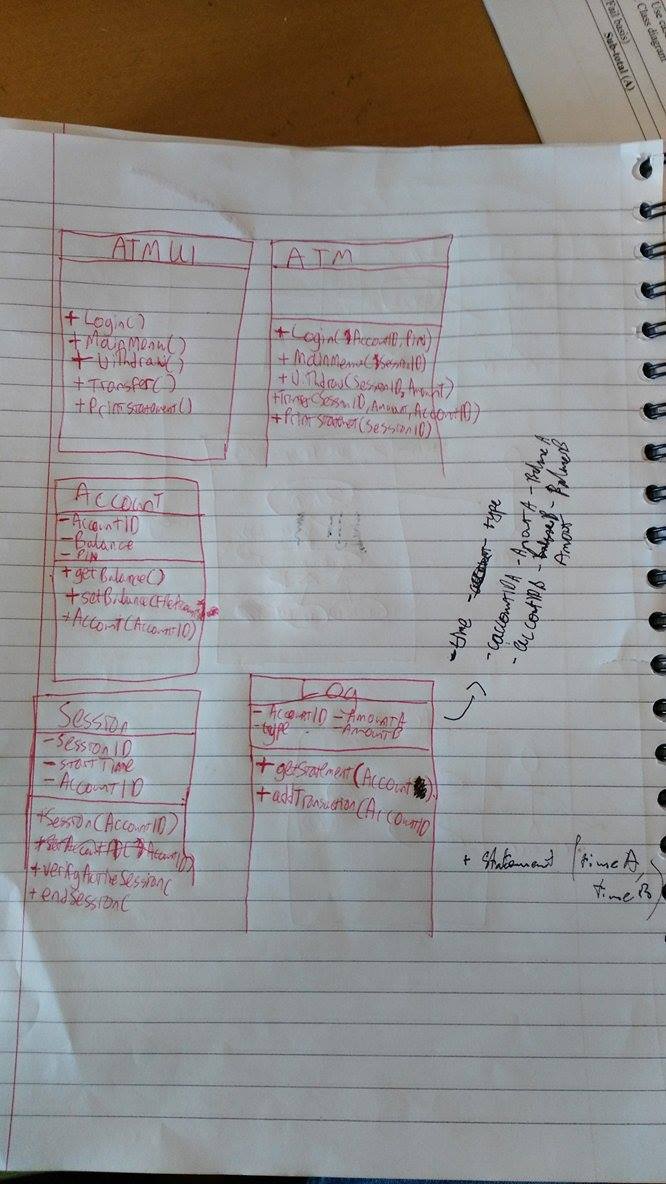 Class diagram
(Fail basis)
Sub-total (A)
ATM UI
+ Login()
+ MainMenu()
+ Withdraw()
+ Transfer()
+ PrintStatement()
ATM
+ Login(AccountID, Pin)
+ MainMenu(SessionID)
+ Withdraw(SessionID, Amount)
+ Transfer(SessionID, Amount, AccountID)
+ PrintStatement(SessionID)
Account
- AccountID
- Balance
- PIN
+ getBalance()
+ setBalance(
+ Account(AccountID)
Session
- SessionID
- startTime
- AccountID
+ Session(AccountID)
+ SetAccountID(AccountID)
+ verifyActiveSession(
+ endSession(
Log
- AccountID - AmountA
- type - AmountB
+ getStatement(Account
+ addTransaction(AccountID
- time - type
- accountIDA - AmountA - BalanceA
- accountIDB - BalanceB
Amount
+ statement (timeA,
timeB)